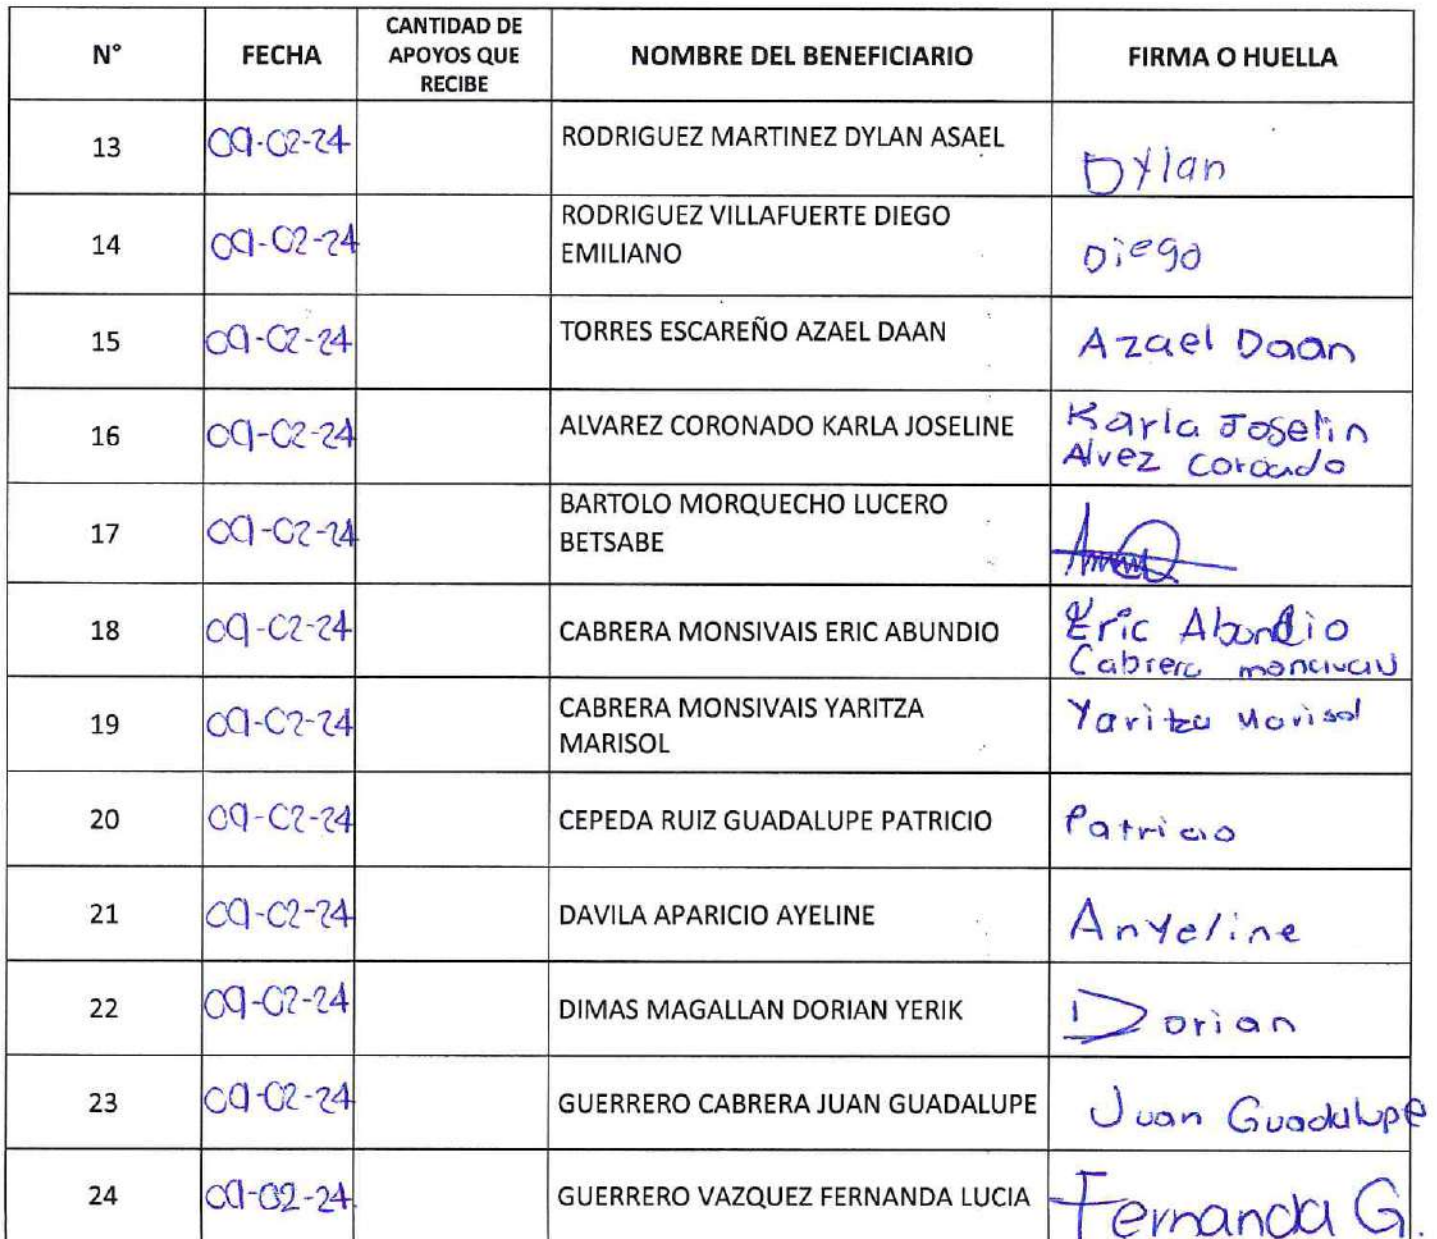 N° FECHA CANTIDAD DE APOYOS QUE RECIBE NOMBRE DEL BENEFICIARIO FIRMA O HUELLA
13 09-02-24 RODRIGUEZ MARTINEZ DYLAN ASAEL Dylan
14 09-02-24 RODRIGUEZ VILLAFUERTE DIEGO
EMILIANO Diego
15 09-02-24 TORRES ESCAREÑO AZAEL DAAN Azael Daan
16 09-02-24 ALVAREZ CORONADO KARLA JOSELINE Karla Joselin
Alvez
17 09-02-24 BARTOLO MORQUECHO LUCERO
BETSABE
18 09-02-24 CABRERA MONSIVAIS ERIC ABUNDIO Eric Abundio
Cabrera
19 09-02-24 CABRERA MONSIVAIS YARITZA Yaritza Marisol
MARISOL
20 09-02-24 CEPEDA RUIZ GUADALUPE PATRICIO Patricio
21 09-02-24 DAVILA APARICIO AYELINE Anyeline
22 09-02-24 DIMAS MAGALLAN DORIAN YERIK Dorian
23 09-02-24 GUERRERO CABRERA JUAN GUADALUPE Juan Guadalupe
24 09-02-24 GUERRERO VAZQUEZ FERNANDA LUCIA Fernanda G.